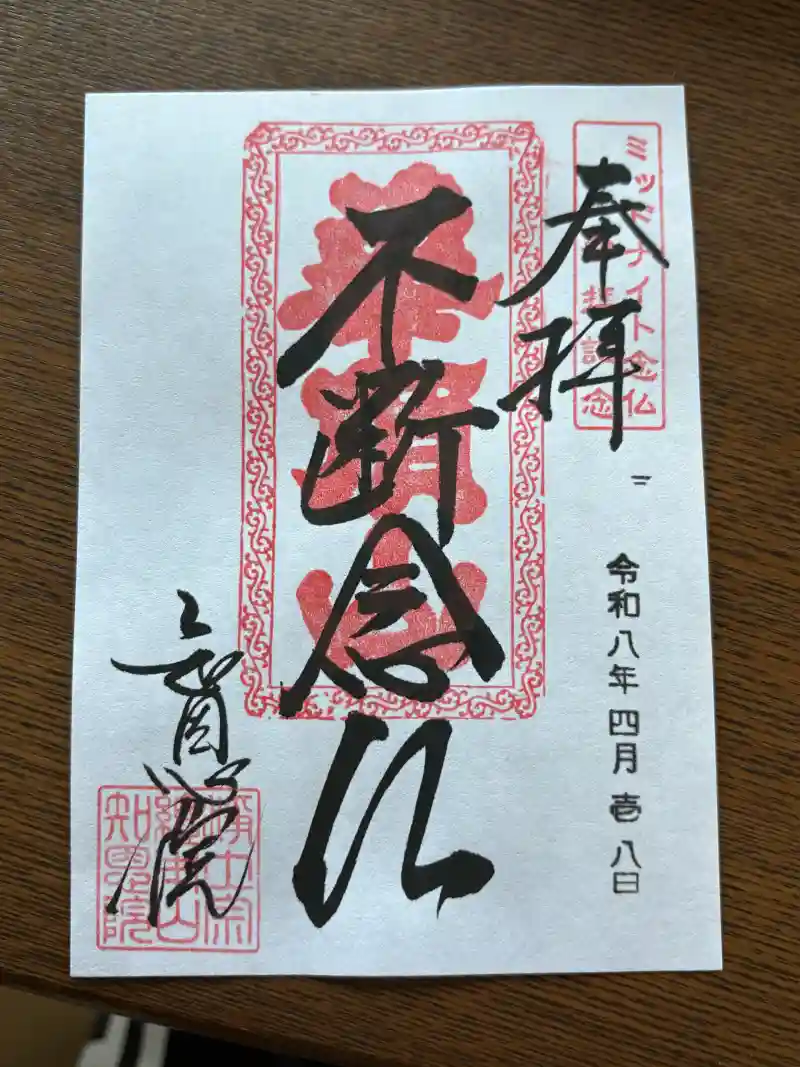 ミッドナイト念仏
参拝記念
奉拝
令和八年四月壱八日
不断念仏
華頂山
知恩院
浄土宗
総本山
知恩院